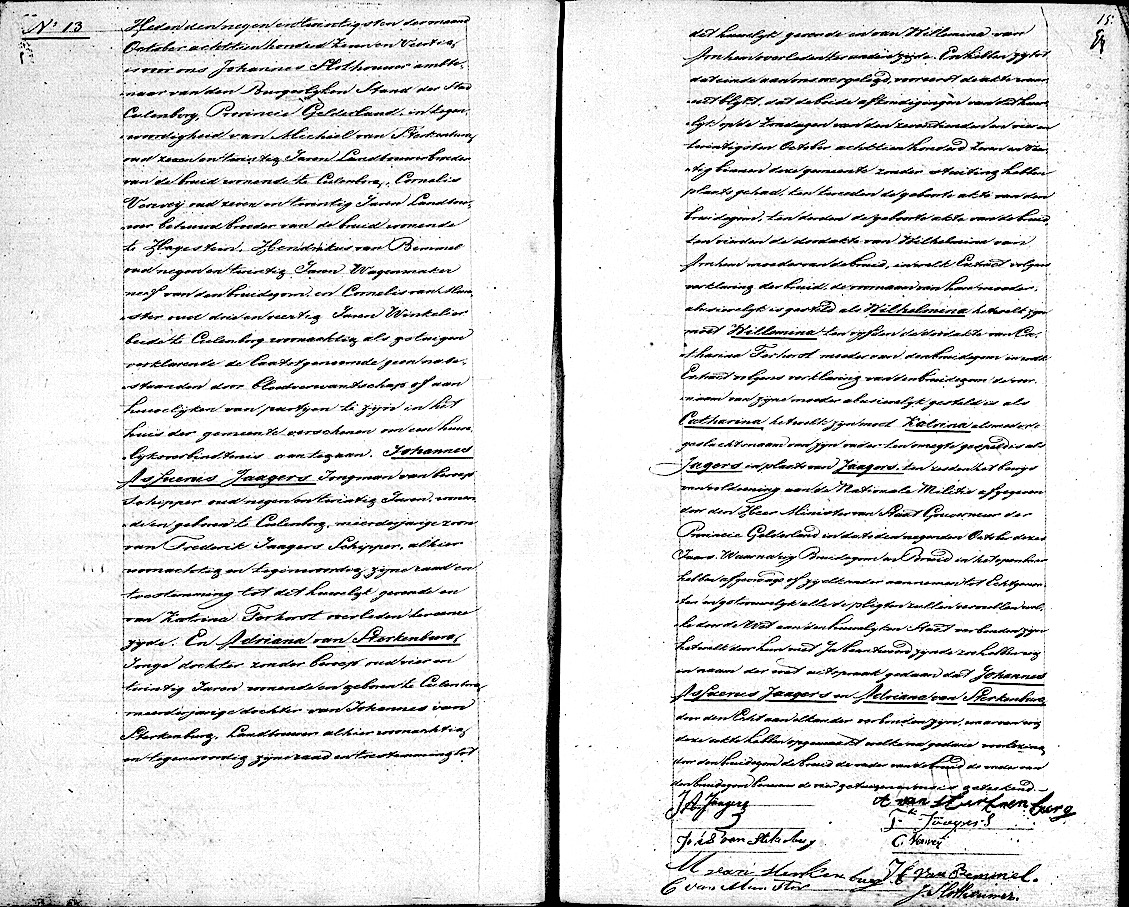 No 13
Heden den negen en twintigsten der maand
October achttien honderd zeven en veertig
voor ons Johannes Slotheimer ambte-
naar van den Burgerlyken Stand der Stad
Culenborg, Provincie Gelderland, in tegen-
woordigheid van Michiel van Sterkenburg
oud zeven en twintig Jaren Landbouwer broeder
van de bruid wonende te Culenborg, Cornelis
Verwey oud zeven en twintig Jaren Landbou-
wer behuwd broeder van de bruid wonende
te Hagestein, Hendrikus van Bemmel
oud negen en twintig Jaren Wagenmaker
neef van den bruidegom en Cornelis van Mun-
ster oud drie en veertig Jaren Winkelier
beide te Culenborg woonachtig als getuigen
verklarende de laatstgenoemde geen nabe-
staanden door bloedverwantschap of aan-
huwelijken van partyen te zyn in het
huis der gemeente verschenen om een huwe-
lyksverbindtenis aan te gaan. Johannes
Assuerus Jaagers Jongman van beroep
schipper oud negen en twintig Jaren, wonen-
de en geboren te Culenborg, meerderjarige zoon
van Frederik Jaagers Schipper, alhier
woonachtig en tegenwoordig zyne raad en
toestemming tot dit huwelyk gevende en
van Katrina Terhorst overleden ter eenre
zyde. En Adriana van Sterkenburg
Jonge dochter zonder beroep oud vier en
twintig Jaren wonende en geboren te Culenborg
meerderjarige dochter van Johannes van
Sterkenburg, Landbouwer alhier woonachtig
en tegenwoordig zyne raad en toestemming tot
15
dit huwelyk gevende en van Willemina van
Arnhem overleden ter andere zyde. En hebben zy tot
dat einde aan ons overgelegd, vooreerst de akte waar-
uit blykt, dat de beide afkondigingen van dit huwe-
lyk op de Zondagen van den zeventienden en vier en
twintigsten October achttien honderd zeven en veer-
tig binnen deze gemeente zonder stuiting hebben
plaats gehad, ten tweeden de geboorte akte van den
bruidegom, ten derden de geboorte akte van de bruid
ten vierden de doodakte van Wilhelmina van
Arnhem moeder van de bruid, in welk Extract volgens
verklaring der bruid de voornaam van haar moeder,
abusievelyk is gesteld als Wilhelmina hetwelk zyn
moet Willemina ten vyfden de doodakte van Ca-
tharina Terhorst moeder van den bruidegom in welk
Extract volgens verklaring van den bruidegom de voor-
naam van zyne moeder abusievelyk gesteld is als
Catharina hetwelk zyn moet Katrina alsmede de
geslachtsnaam van zyn vader ten onregte gespeld is als
Jagers in plaats van Jaagers, ten zesden het bewys
van voldoening aan de Nationale Militie afgegeven
door den Heer Minister van Staat Gouverneur der
Provincie Gelderland in dato den negenden October dezes
Jaars. Waarna wy Bruidegom en Bruid in het openbaar
hebben afgevraagd of zy elkander aannemen tot Echtgenoo-
ten en getrouwelyk alle de pligten zullen vervullen wel-
ke door de Wet aan den huwelyken Staat verbonden zyn
hetwelk door hen met Ja beantwoord zynde zoo hebben wy
in naam der wet uitspraak gedaan dat Johannes
Assuerus Jaagers en Adriana van Sterkenburg
door den Echt aan elkander verbonden zyn, waarvan wy
deze akte hebben opgemaakt welke na gedane voorlezing
door den bruidegom de bruid de vader van de bruid de vader van
den bruidegom benevens de vier getuigen en ons is geteekend.
J A Jaagers
A van Sterkenburg
Fk Jaagers
Joh van Sterkenburg
C Verwey
M van Sterkenburg
H van Bemmel.
C van Munster
J Slotheimer.